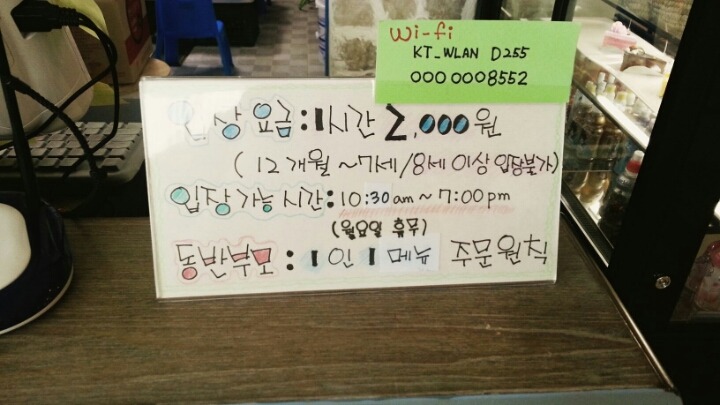 Wi-fi
KT_WLAN D255
000 0008552
인상요금:1시간 2,000원
(12개월~7세/8세이상 입장불가)
입장가능시간:10:30am~7:00pm
(월요일 휴무)
동반부모:1인1메뉴 주문원칙